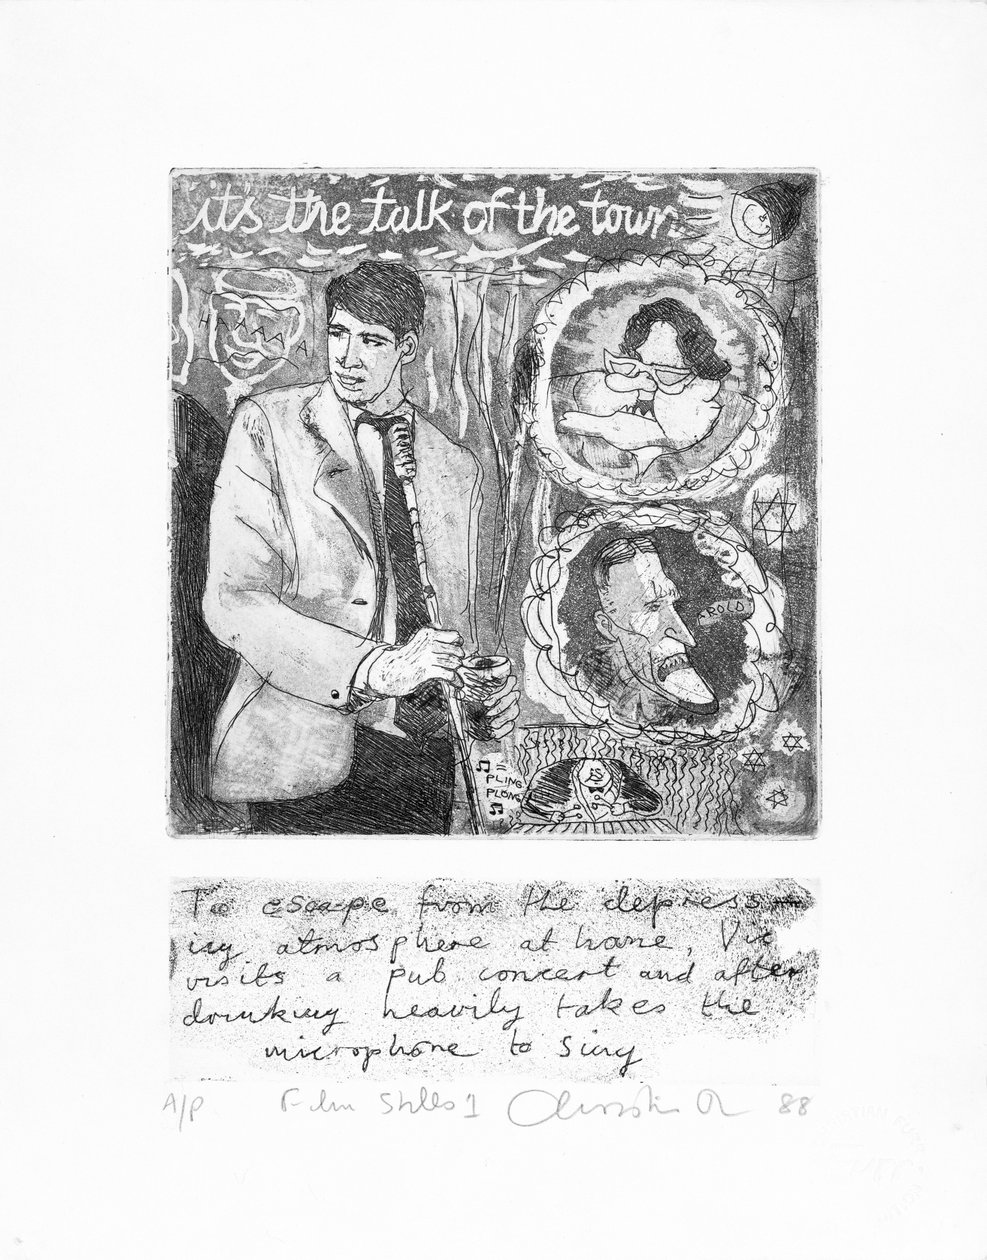 it's the talk of the town
HAAAAA
AROLD
PLING
PLONG
To escape from the depress-
ing atmosphere at home, Vic
visits a pub concert and after
drinking heavily takes the
microphone to sing
A/P Film Stills 1 88